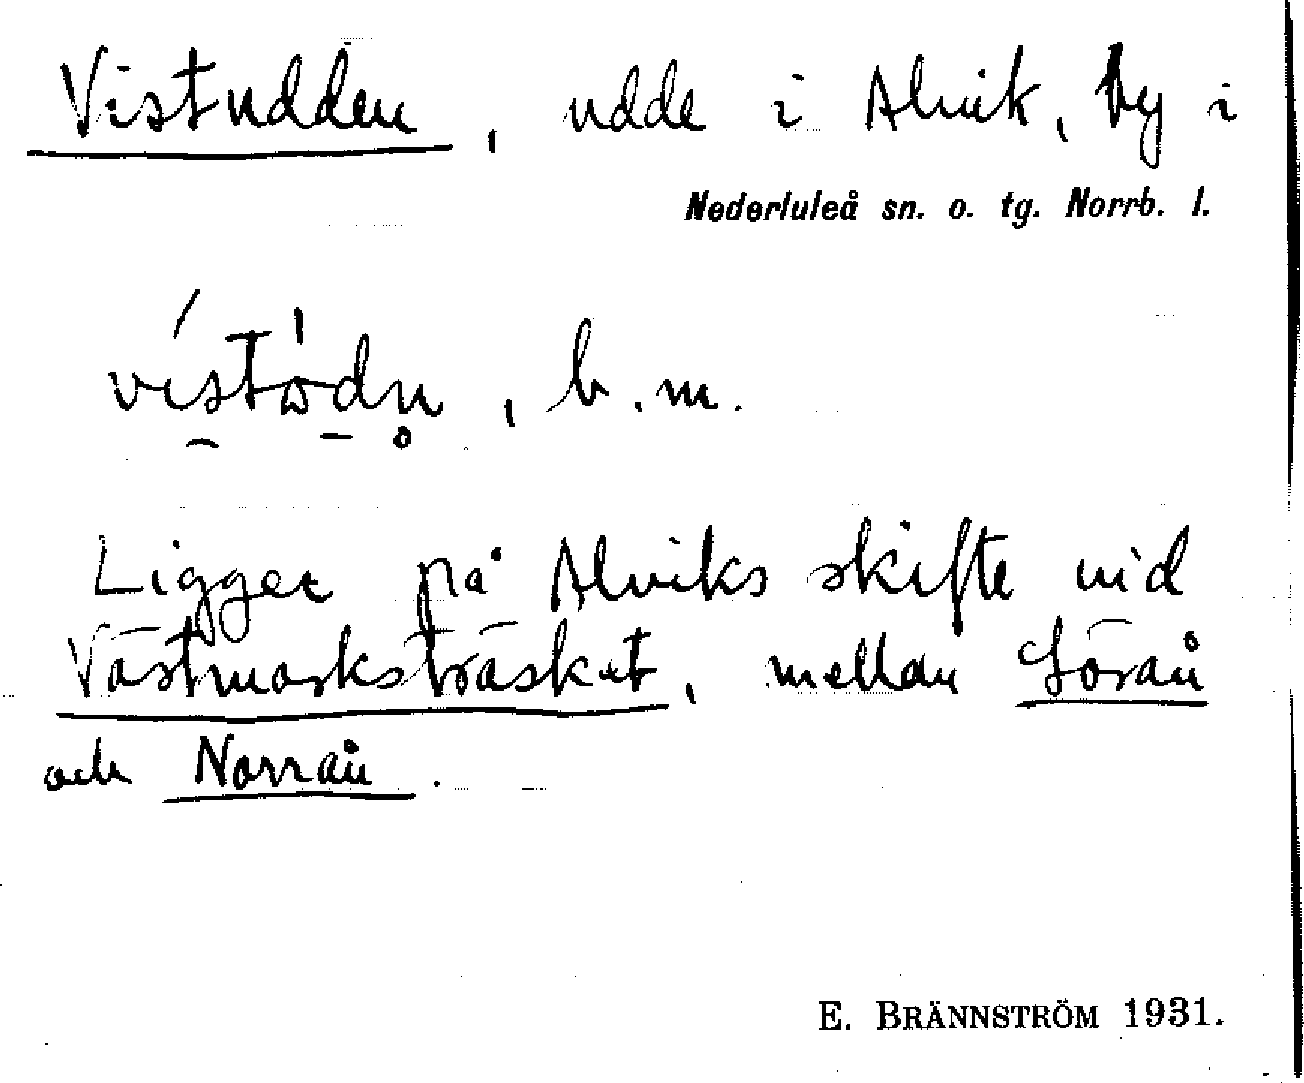 Vistudden, udde i Alvik, by i
Nederluleå sn. o. tg. Norrb. l.
, b.m.
Ligger på Alviks skifte vid
Västmarksträsket, mellan Sörån
och Norrån.
E. BRÄNNSTRÖM 1931.